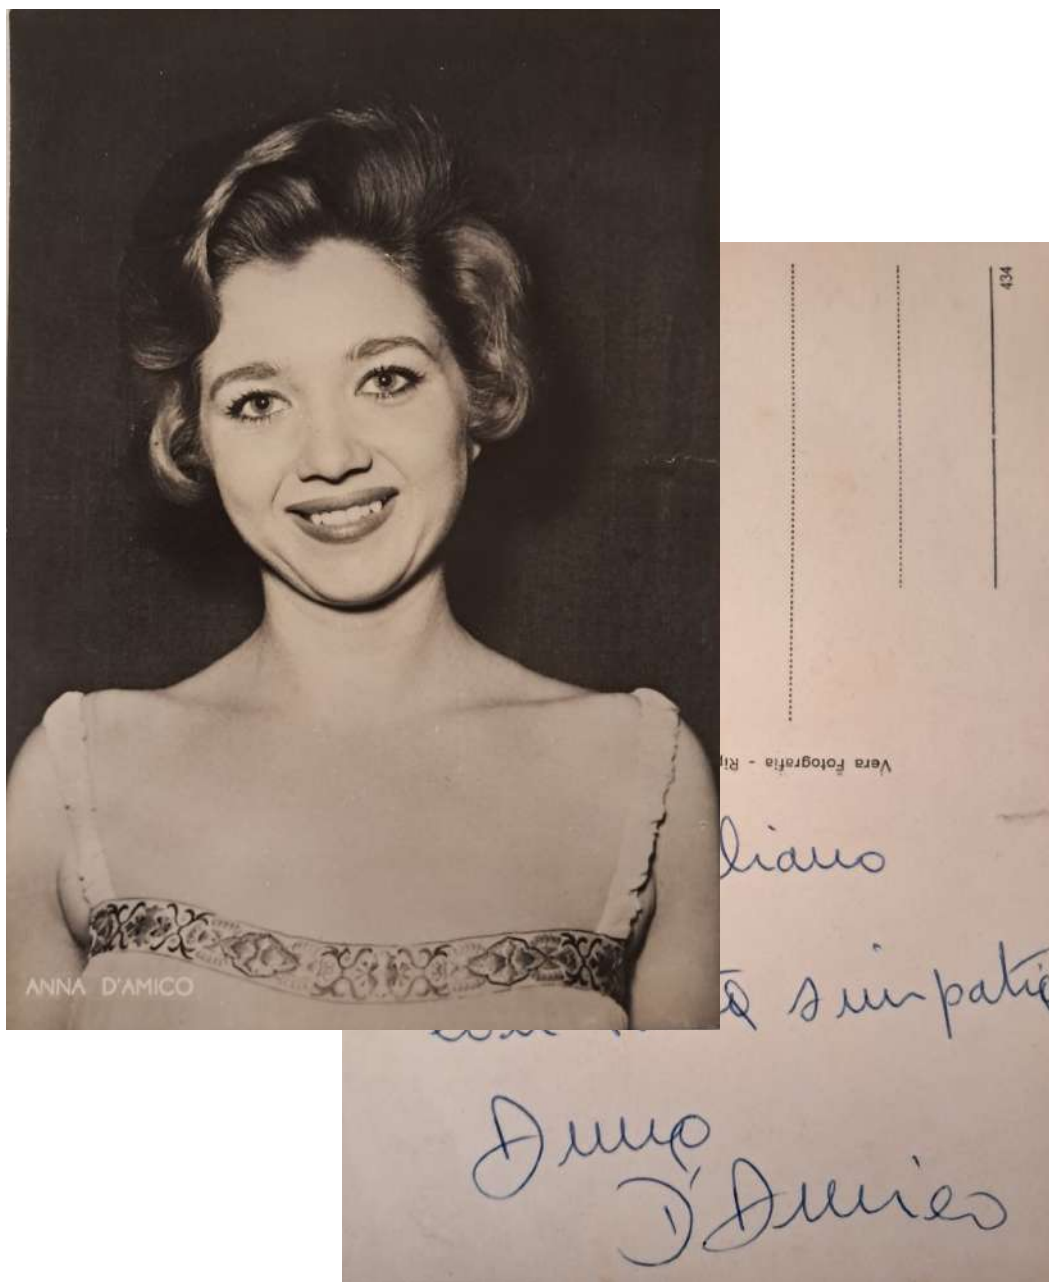 ANNA D'AMICO
434
Vera Fotografia - Rip
liano
simpati
Anna
D'Amico